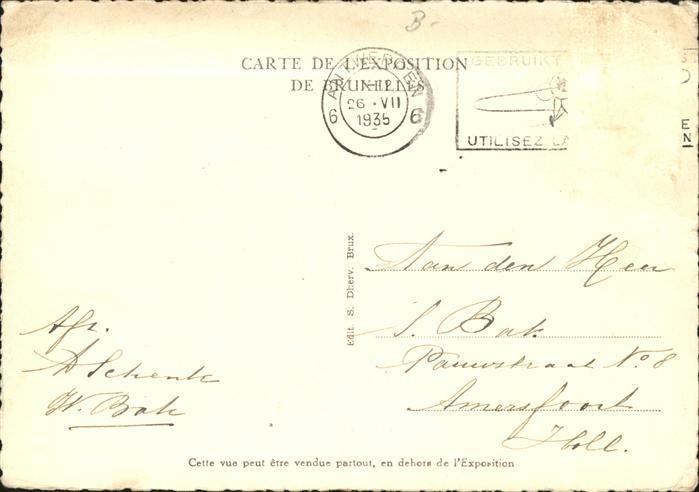 B-
CARTE DE L'EXPOSITION
DE BRUXELLES
ANTWERPEN
X-12
26 · VII
1935
6 6
GEBRUIKT
UTILISEZ LA
EN
Edit. S. Dherv. Brux.
Aan den Heer
S. Bak
Pauwstraat No. 8
Amersfoort
Holl.
Afz.
A Schenk
W. Bak
Cette vue peut être vendue partout, en dehors de l'Exposition